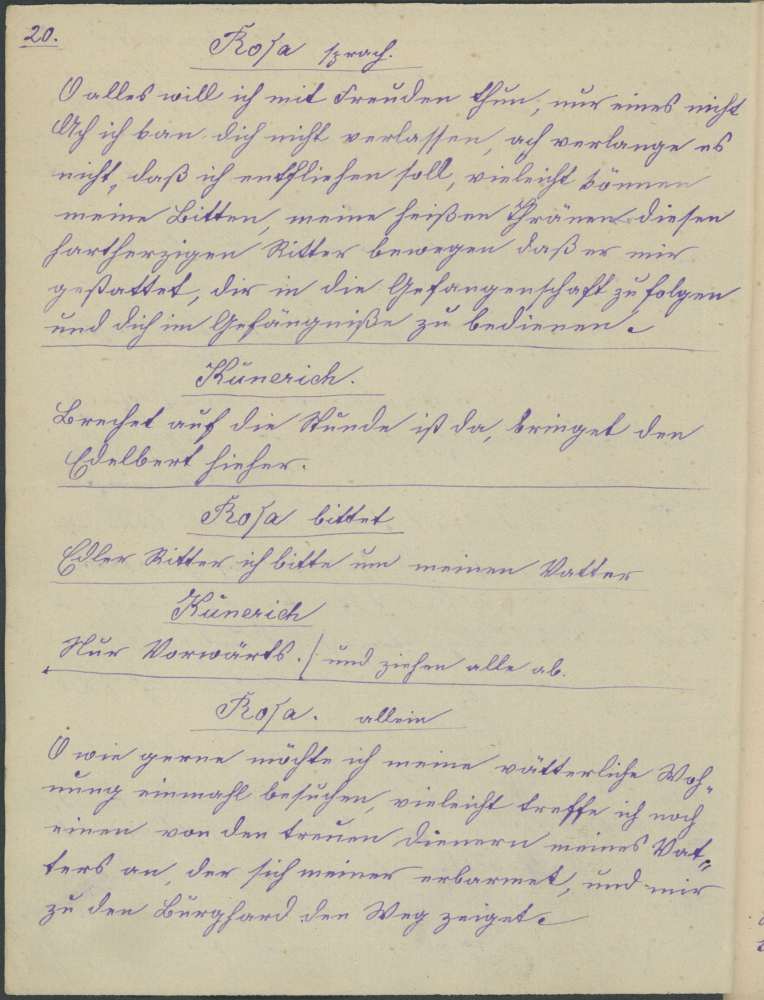 20.
Rosa sprach.
O alles will ich mit Freuden thun, nur eines nicht
Ach ich kan dich nicht verlassen, ach verlange es
nicht, daß ich entfliehen soll, vieleicht können
meine Bitten, meine heißen Thränen diesen
hartherzigen Ritter bewegen daß er mir
gestattet, dir in die Gefangenschaft zu folgen
und dich im Gefängniße zu bedienen.
Künerich.
Brechet auf die Stunde ist da, bringet den
Edelbert hieher.
Rosa bittet
Edler Ritter ich bitte um meinen Vatter
Künerich
Nur Vorwärts. / und ziehen alle ab.
Rosa. allein
O wie gerne möchte ich meine vätterliche Woh„
nung einmahl besuchen, vieleicht treffe ich noch
einen von den treuen Dienern meines Vat„
ters an, der sich meiner erbarmet, und mir
zu den Burghard den Weg zeiget.